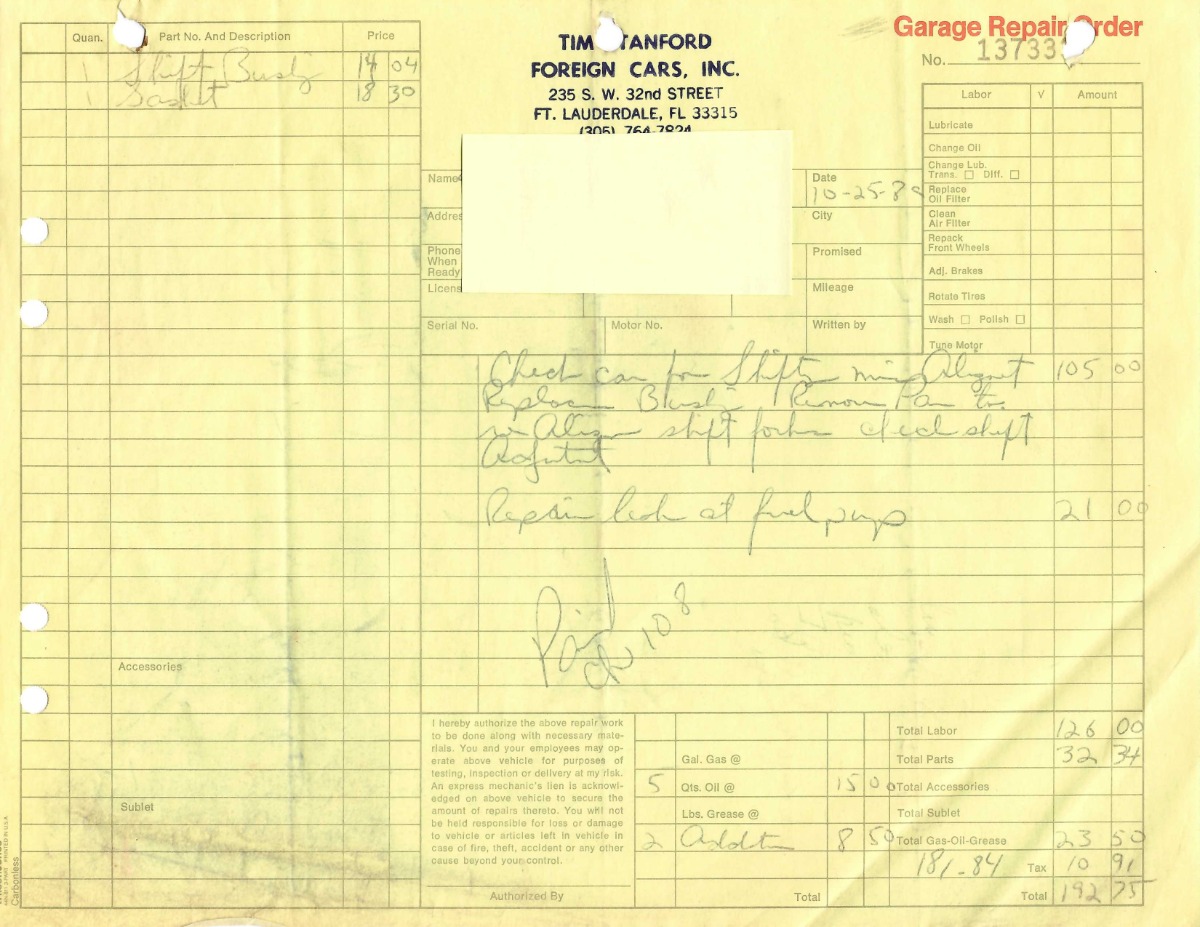 Garage Repair Order
No. 13733
TIM STANFORD
FOREIGN CARS, INC.
235 S. W. 32nd STREET
FT. LAUDERDALE, FL 33315
(305) 764-7824
Quan. Part No. And Description Price
1 Shift Bushg 14 04
1 Gasket 18 30
Accessories
Sublet
Name
Date
10-25-89
Addre
City
Phone
When
Ready
Promised
Licens
Mileage
Serial No. Motor No. Written by
Labor √ Amount
Lubricate
Change Oil
Change Lub.
Trans. ☐ Diff. ☐
Replace
Oil Filter
Clean
Air Filter
Repack
Front Wheels
Adj. Brakes
Rotate Tires
Wash ☐ Polish ☐
Tune Motor
Check car for Shift 105 00
Remove Pan to
re Align shift check shift
Repair leak at fuel pump 21 00
Paid
ck 108
I hereby authorize the above repair work
to be done along with necessary mate-
rials. You and your employees may op-
erate above vehicle for purposes of
testing, inspection or delivery at my risk.
An express mechanic's lien is acknowl-
edged on above vehicle to secure the
amount of repairs thereto. You will not
be held responsible for loss or damage
to vehicle or articles left in vehicle in
case of fire, theft, accident or any other
cause beyond your control.
Authorized By
Gal. Gas @
5 Qts. Oil @ 15 00
Lbs. Grease @
2 8 50
Total
Total Labor 126 00
Total Parts 32 34
Total Accessories
Total Sublet
Total Gas-Oil-Grease 23 50
181.84 Tax 10 91
Total 192 75
Carbonless